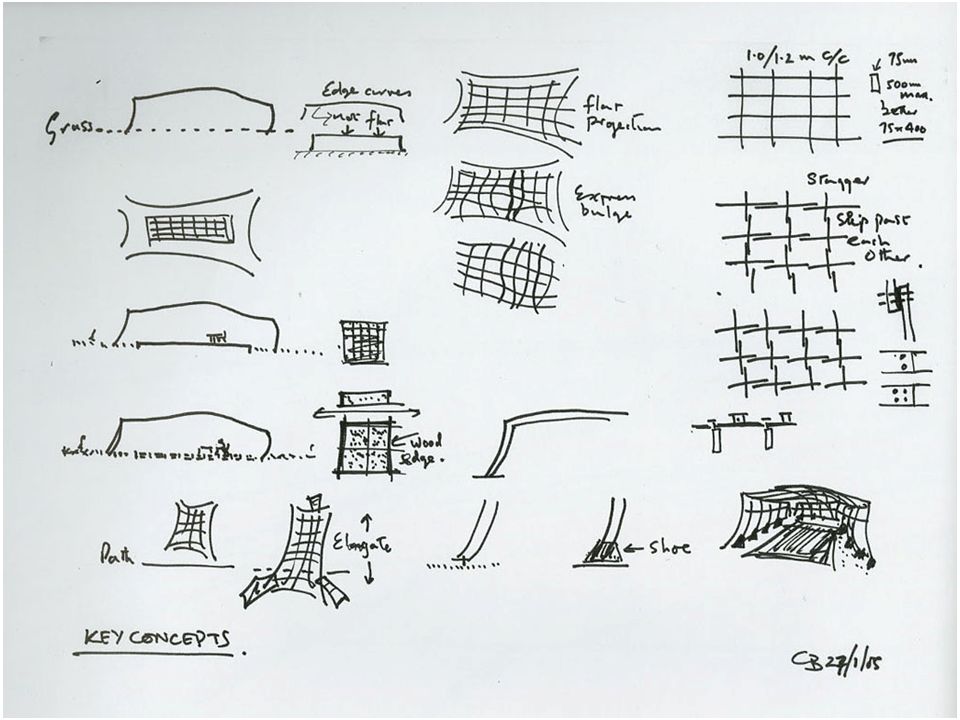 Grass
Edge curves
not flat
flat
projection
Express
bulge
1.0/1.2 m c/c
75mm
500mm
max.
better
75x400
Stagger
Slip past
each
other.
wood
edge.
Path
Elongate
Shoe
KEY CONCEPTS.
CB 27/1/05